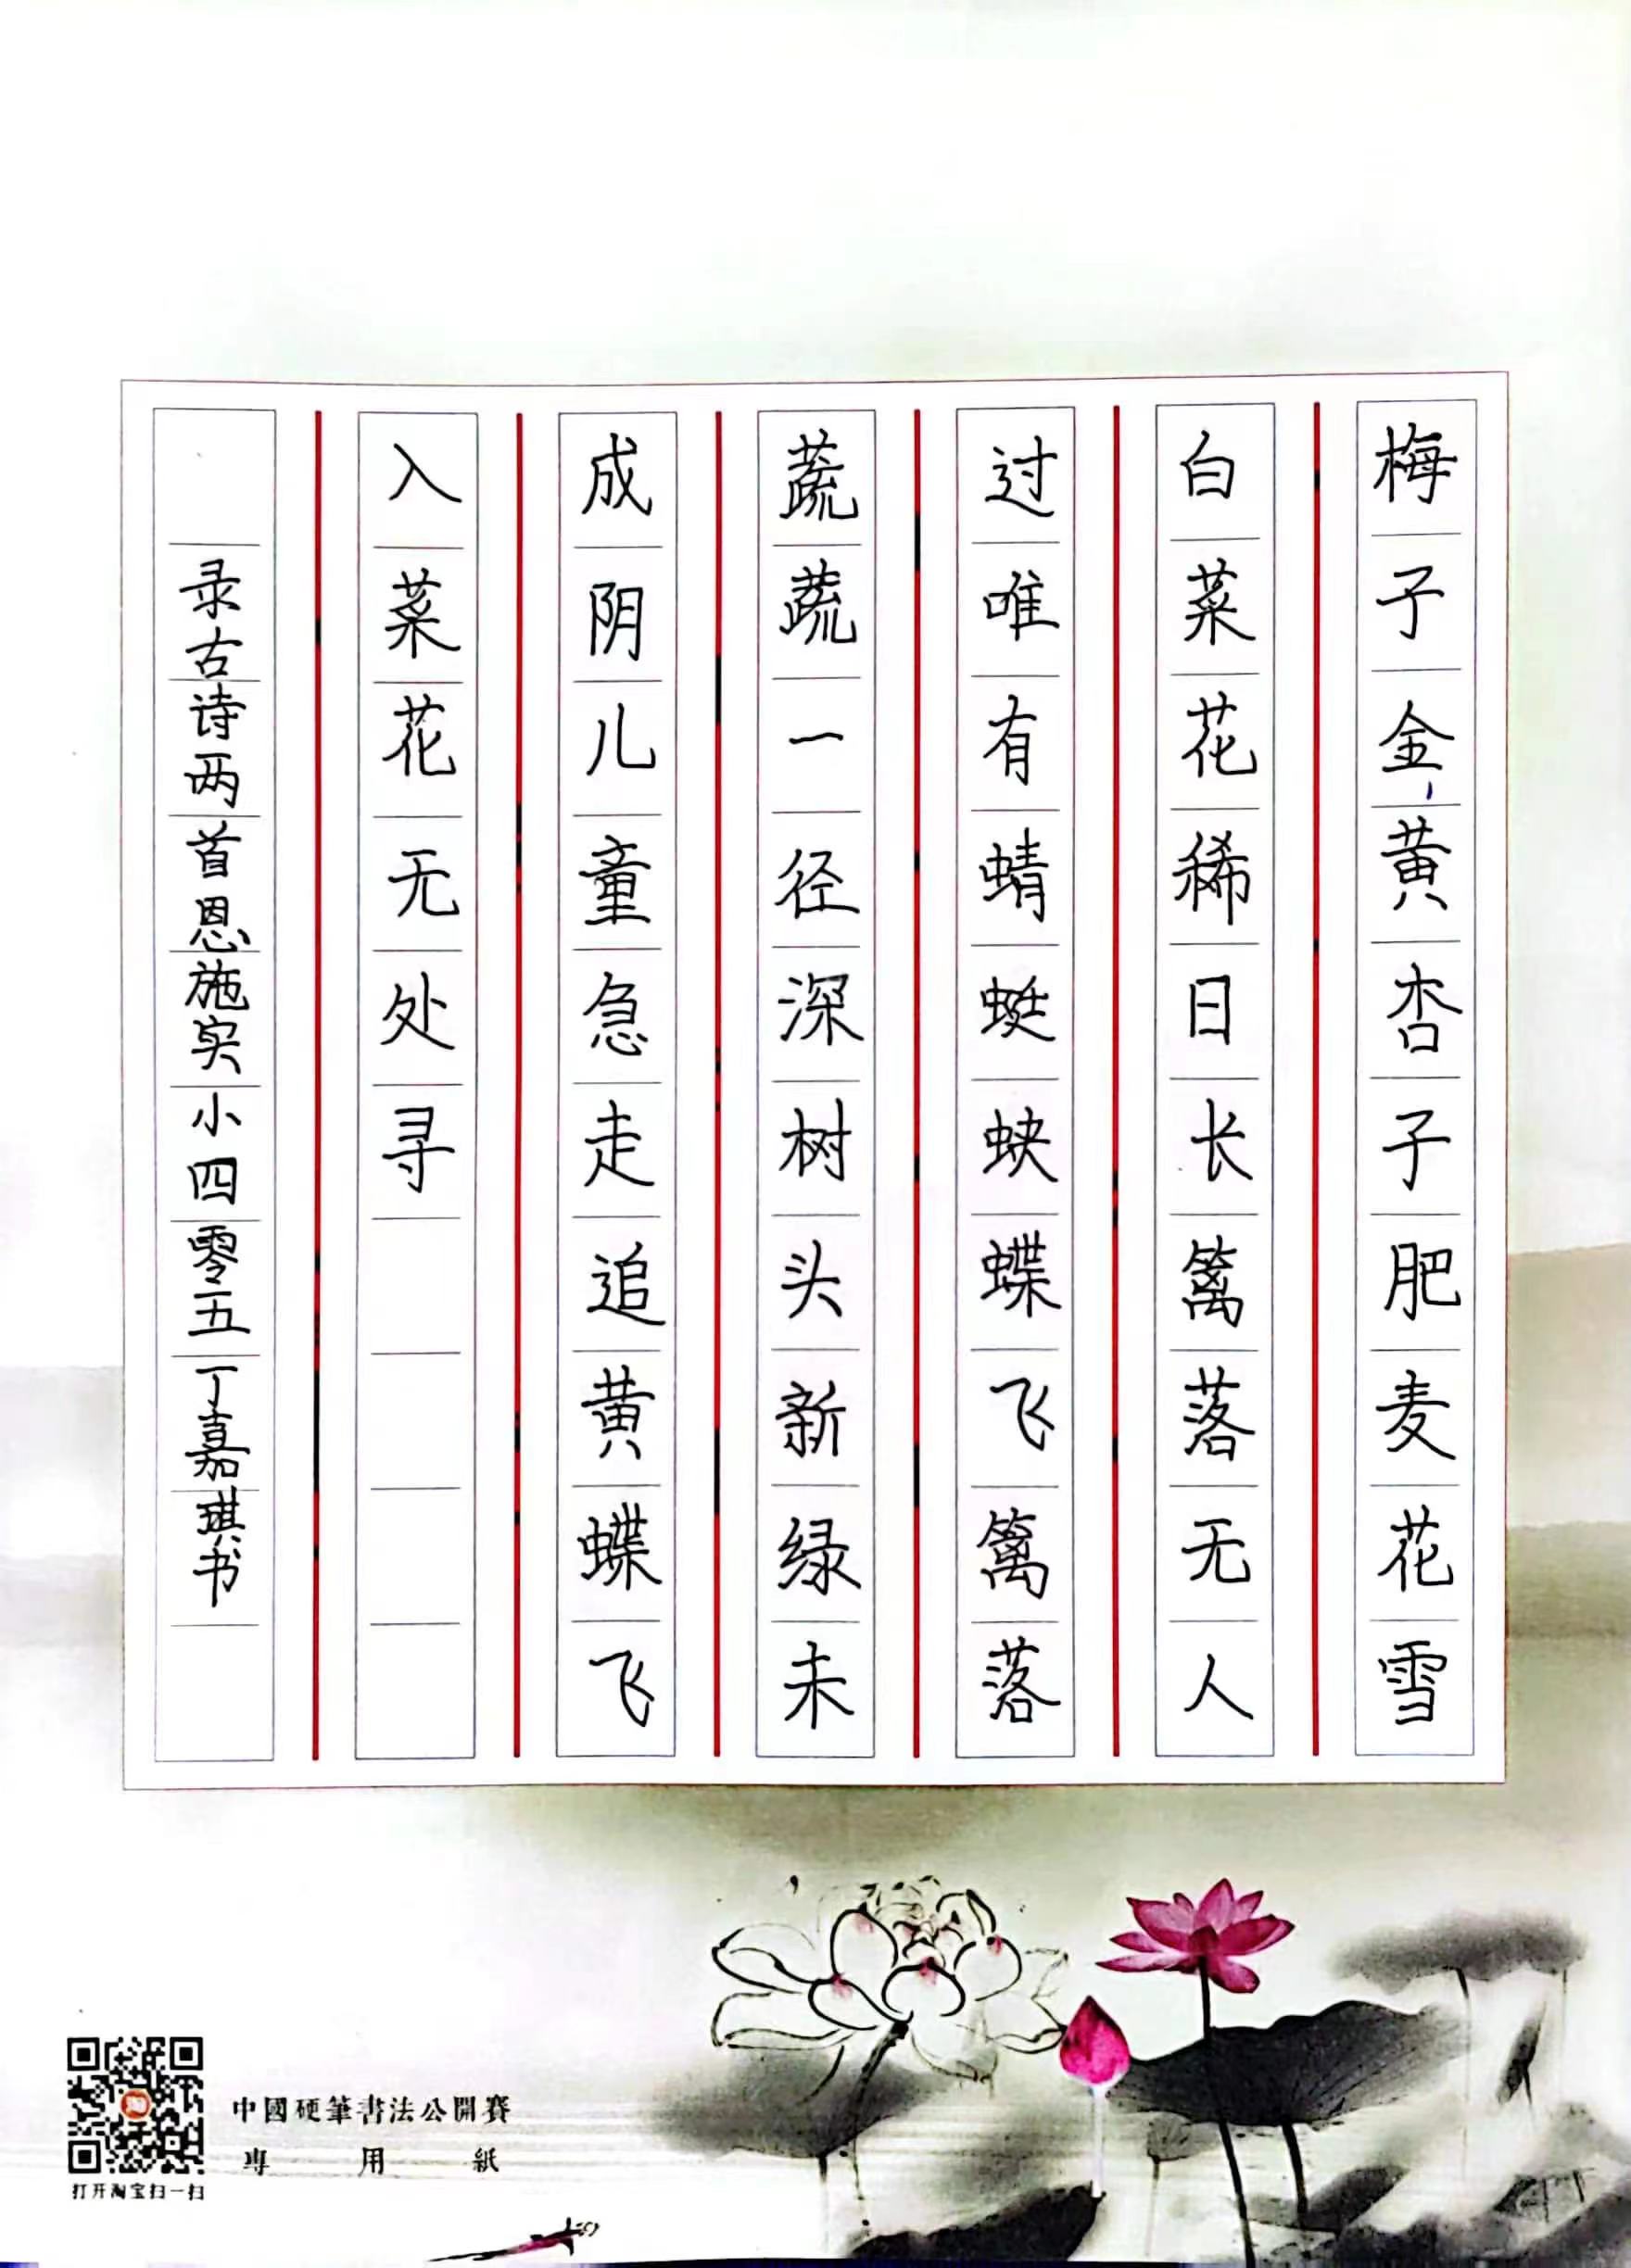 梅子金黄杏子肥麦花雪
白菜花稀日长篱落无人
过唯有蜻蜓蛱蝶飞篱落
蔬蔬一径深树头新绿未
成阴儿童急走追黄蝶飞
入菜花无处寻
录古诗两首恩施实小四零五丁嘉琪书
中國硬筆書法公開賽
專用紙
打开淘宝扫一扫